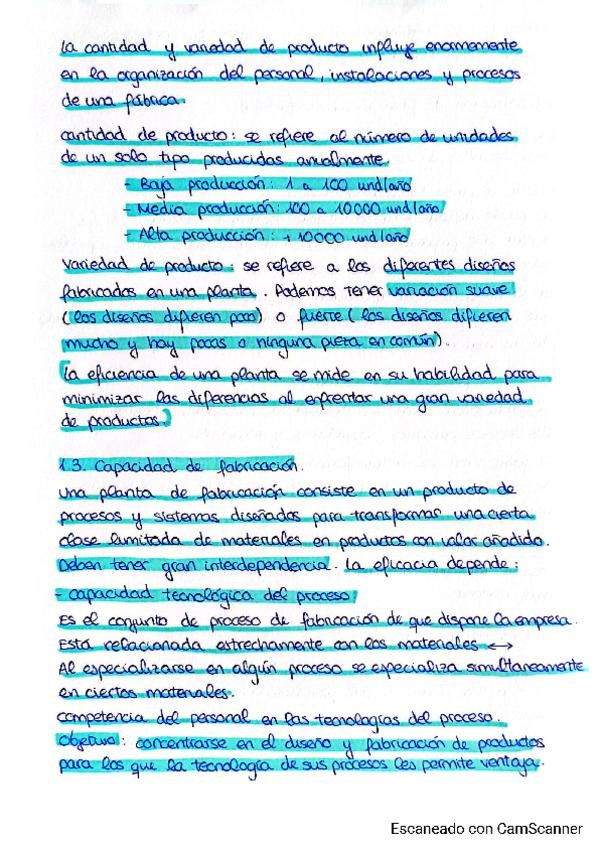 La cantidad y variedad de producto influye enormemente
en la organización del personal, instalaciones y procesos
de una fábrica.
Cantidad de producto: se refiere al número de unidades
de un solo tipo producidas anualmente.
- Baja producción: 1 a 100 und/año
- Media producción: 100 a 10000 und/año
- Alta producción: + 10000 und/año
Variedad de producto: se refiere a los diferentes diseños
fabricados en una planta. Podemos tener variación suave
(los diseños difieren poco) o fuerte (los diseños difieren
mucho y hay pocas o ninguna pieza en común).
La eficiencia de una planta se mide en su habilidad para
minimizar las diferencias al enfrentar una gran variedad
de productos.
1.3. Capacidad de fabricación.
Una planta de fabricación consiste en un producto de
procesos y sistemas diseñados para transformar una cierta
clase limitada de materiales en productos con valor añadido.
Deben tener gran interdependencia. La eficacia depende:
- Capacidad tecnológica del proceso:
Es el conjunto de proceso de fabricación de que dispone la empresa.
Está relacionada estrechamente con los materiales ↔
Al especializarse en algún proceso se especializa simultaneamente
en ciertos materiales.
Competencia del personal en las tecnologías del proceso.
Objetivo: concentrarse en el diseño y fabricación de productos
para los que la tecnología de sus procesos les permite ventaja.
Escaneado con CamScanner